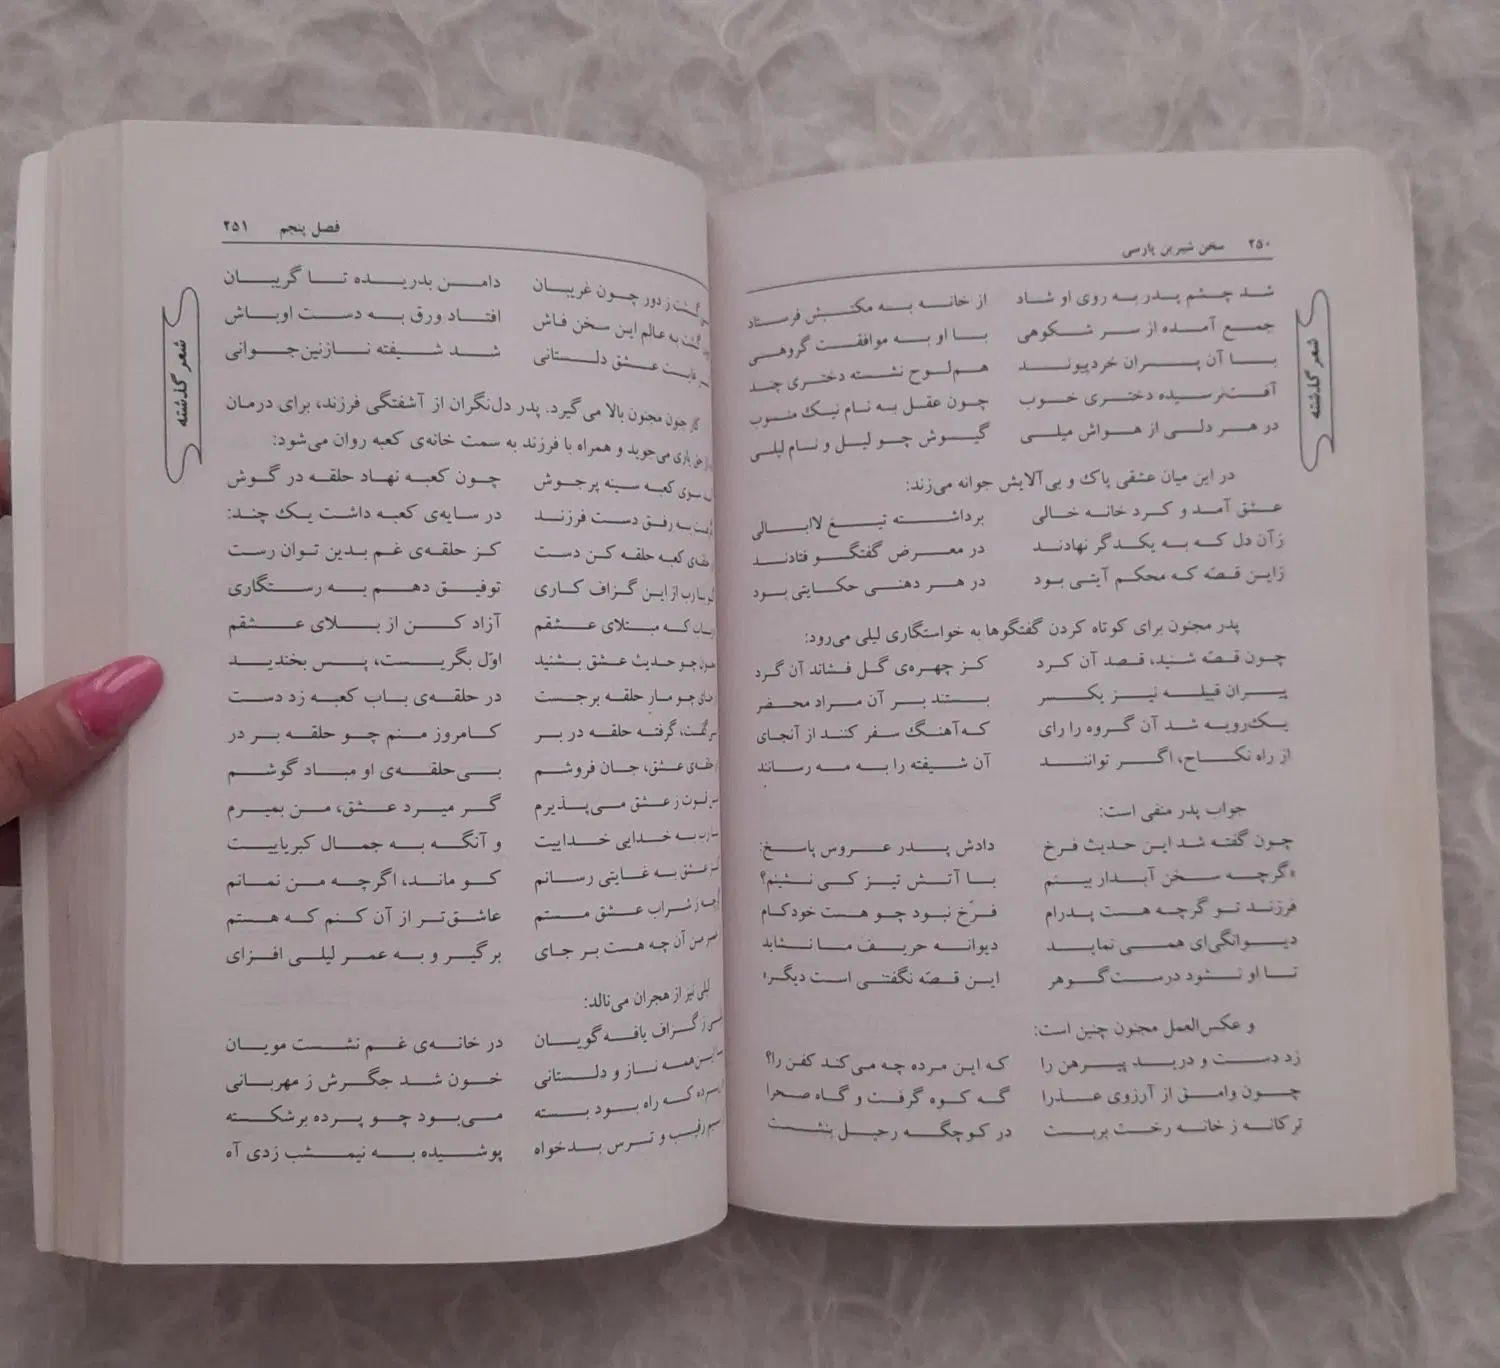 ۲۵۰ سخن شیرین پارسی
شعر گذشته
شد چشم پدر به روی او شاد از خانه به مکتبش فرستاد
جمع آمده از سر شکوهی با او به موافقت گروهی
با آن پسران خردپیوند هم‌لوح نشسته دختری چند
آفت‌نرسیده دختری خوب چون عقل به نام نیک منسوب
در هر دلی از هواش میلی گیسوش چو لیل و نام لیلی
در این میان عشقی پاک و بی‌آلایش جوانه می‌زند:
عشق آمد و کرد خانه خالی برداشته تیغ لاابالی
زآن دل که به یکدگر نهادند در معرض گفتگو فتادند
زاین قصّه که محکم آیتی بود در هر دهنی حکایتی بود
پدر مجنون برای کوتاه کردن گفتگوها به خواستگاری لیلی می‌رود:
چون قصّه شنید، قصد آن کرد کز چهره‌ی گل فشاند آن گرد
پیران قبیله نیز یکسر بستند بر آن مراد محضر
یک‌رویه شد آن گروه را رای که‌آهنگ سفر کنند از آنجای
از راه نکاح، اگر توانند آن شیفته را به مه رسانند
جواب پدر منفی است:
چون گفته شد این حدیث فرخ دادش پدر عروس پاسخ:
«گرچه سخن آبدار بینم با آتش تیز کی نشینم؟
فرزند تو گرچه هست پدرام فرّخ نبود چو هست خودکام
دیوانگی‌ای همی نماید دیوانه حریف ما نشاید
تا او نشود درست‌گوهر این قصّه نگفتنی است دیگر»
و عکس‌العمل مجنون چنین است:
زد دست و درید پیرهن را که این مرده چه می‌کند کفن را؟
چون وامق از آرزوی عذرا گه کوه گرفت و گاه صحرا
ترکانه ز خانه رخت بربست در کوچگه رحیل بنشست
فصل پنجم ۲۵۱
شعر گذشته
ز دور چون غریبان دامن بدریده تا گریبان
گشت به عالم این سخن فاش افتاد ورق به دست اوباش
عشق دلستانی شد شیفته نازنین‌جوانی
کار جنون مجنون بالا می‌گیرد. پدر دل‌نگران از آشفتگی فرزند، برای درمان
یاری می‌جوید و همراه با فرزند به سمت خانه‌ی کعبه روان می‌شود:
سوی کعبه سینه پرجوش چون کعبه نهاد حلقه در گوش
به رفق دست فرزند در سایه‌ی کعبه داشت یک چند:
کعبه حلقه کن دست کز حلقه‌ی غم بدین توان رست
یارب از این گزاف کاری توفیق دهم به رستگاری
که مبتلای عشقم آزاد کن از بلای عشقم
چو حدیث عشق بشنید اوّل بگریست، پس بخندید
چو مار حلقه برجست در حلقه‌ی باب کعبه زد دست
گرفته حلقه در بر کامروز منم چو حلقه بر در
عشق، جان فروشم بی‌حلقه‌ی او مباد گوشم
قوت ز عشق می‌پذیرم گر میرد عشق، من بمیرم
یارب به خدایی خداییت و آنگه به جمال کبریاییت
کز عشق به غایتی رسانم کو ماند، اگرچه من نمانم
گرچه ز شراب عشق مستم عاشق‌تر از آن کنم که هستم
من آن چه هست بر جای برگیر و به عمر لیلی افزای
لیلی نیز از هجران می‌نالد:
ز گزاف یافه‌گویان در خانه‌ی غم نشست مویان
همه ناز و دلستانی خون شد جگرش ز مهربانی
که راه بود بسته می‌بود چو پرده برشکسته
رقیب و ترس بدخواه پوشیده به نیمشب زدی آه